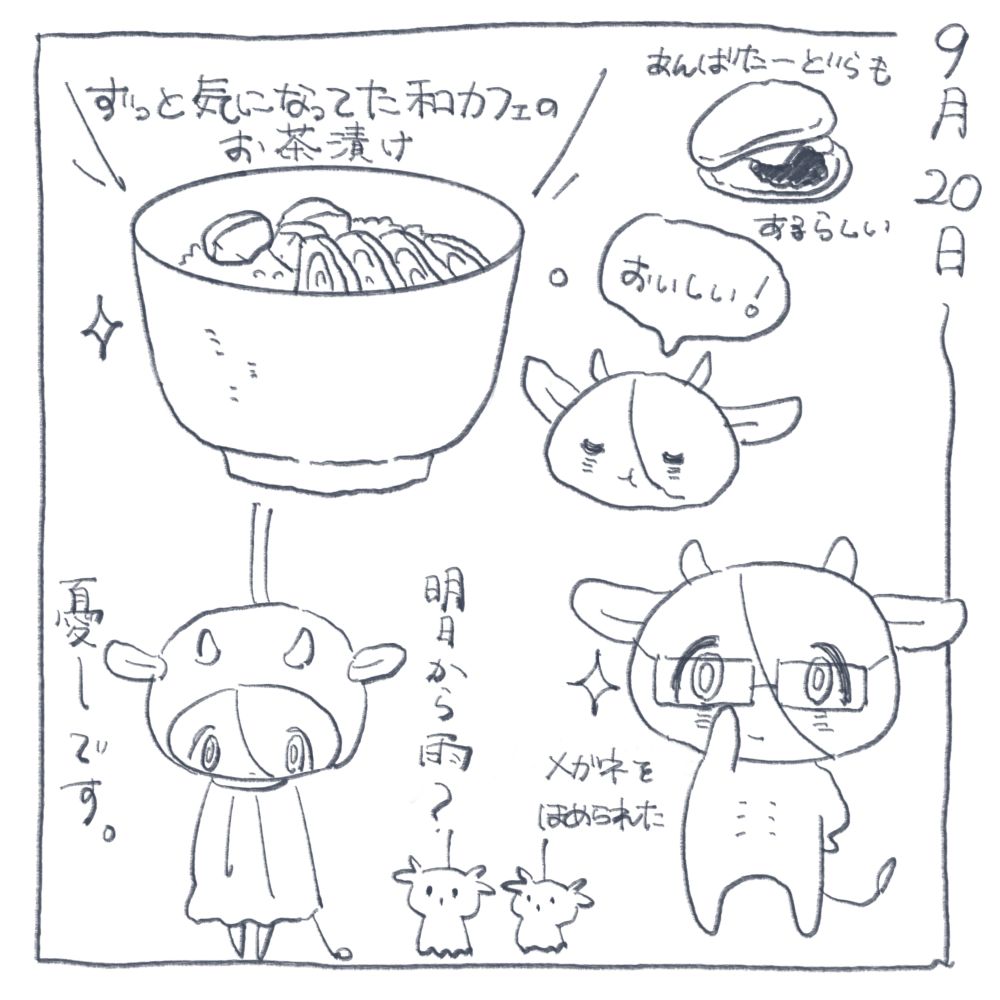 9月20日
ずっと気になってた和カフェの
お茶漬け
あんばたーどらも
あるらしい
おいしい！
メガネを
ほめられた
明日から雨？
憂ーです。